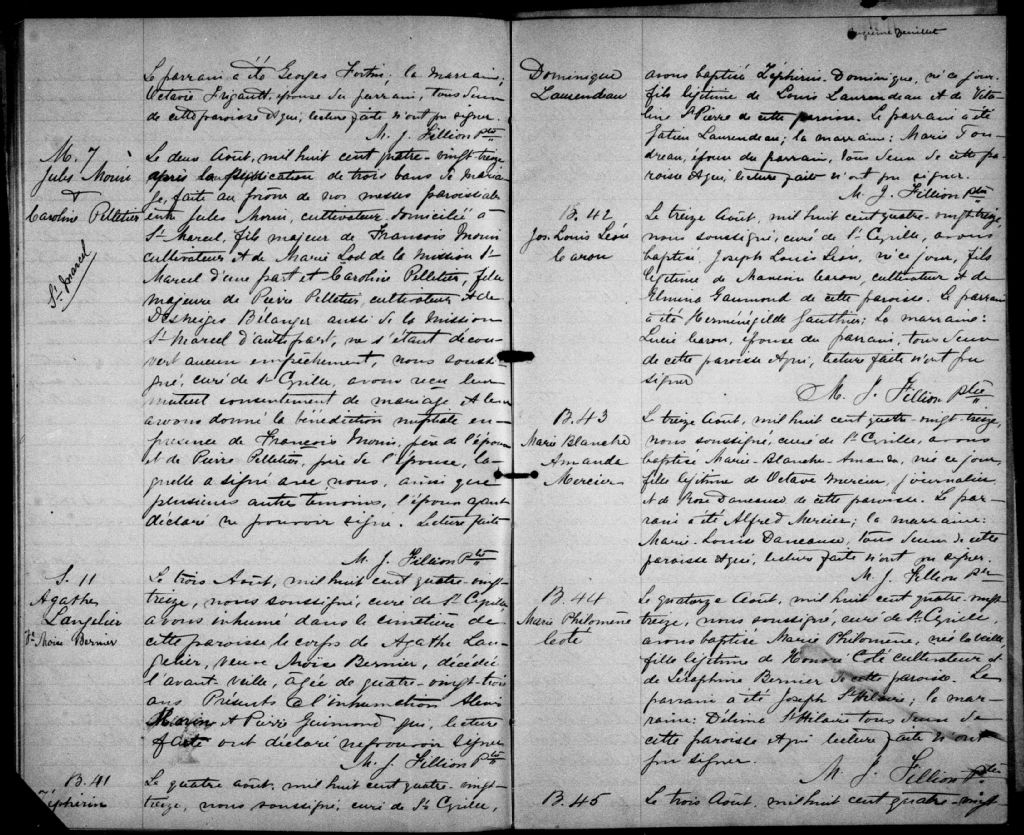 Le parrain a été Georges Fortin; la marraine,
Octavie Frigault, épouse du parrain, tous deux
de cette paroisse Aqui, lecture faite n'ont pu signer.
M. J. Fillion Ptre
M. 7
Jules Morin
&
Caroline Pelletier
St. Marcel
Le deux Août, mil huit cent quatre-vingt treize
après la publication de trois bans de maria-
ge, faite au prône de nos messes paroissiales
entre Jules Morin, cultivateur domicilié à
St. Marcel, fils majeur de Francois Morin
cultivateur et de Marie Lord de la mission St.
Marcel d'une part et Caroline Pelletier, fille
majeure de Pierre Pelletier, cultivateur et de
Desneiges Bélanger aussi de la mission
St. Marcel d'autre part, ne s'étant décou-
vert aucun empêchement, nous soussi-
gné, curé de St. Cyrille, avons reçu leur
mutuel consentement de mariage et leur
avons donné la bénédiction nuptiale en
presence de François Morin, père de l'époux
et de Pierre Pelletier, père de l'épouse, la-
quelle a signé avec nous, ainsi que
plusieurs autre temoins, l'époux ayant
déclaré ne pouvoir signe. Lecture faite
M. J. Fillion Ptre
S. 11
Agathe
Langelier
Ve Moïse Bernier
Le trois Août, mil huit cent quatre-vingt-
treize, nous soussigné, curé de St. Cyrille
avons inhumé dans le cimetière de
cette paroisse le corps de Agathe Lan-
gelier, veuve Moïse Bernier, décédée
l'avant-veille, agée de quatre-vingt-trois
ans Présents à l'inhumation Alexis
Morin et Pierre Guimond qui, lecture
faite ont déclaré ne pouvoir signer
M. J. Fillion Ptre
B. 41
Zéphirin
Le quatre août, mil huit cent quatre-vingt-
treize, nous soussigné, curé de St. Cyrille,
feuillet
Dominique
Laurendeau
avons baptisé Zéphirin-Dominique, né ce jour,
fils légitime de Louis Laurendeau et de Victo-
line St. Pierre de cette paroisse. Le parrain a été
Laurendeau; la marraine: Marie
épouse du parrain, tous deux de cette pa-
roisse Aqui, lecture faite n'ont pu signer.
M. J. Fillion Ptre
B. 42
Jos. Louis Léon
Caron
Le treize Août, mil huit cent quatre-vingt-treize,
nous soussigné, curé de St. Cyrille, avons
baptisé Joseph Louis Léon, né ce jour, fils
légitime de Caron, cultivateur et de
Elmina Gaumond de cette paroisse. Le parrain
a été Herménégilde Gauthier; la marraine:
Lucie Caron, épouse du parrain, tous deux
de cette paroisse Aqui, lecture faite n'ont pu
signer
M. J. Fillion Ptre
B. 43
Marie Blanche
Amanda
Mercier
Le treize Août, mil huit cent quatre-vingt-treize,
nous soussigné, curé de St. Cyrille, avons
baptisé Marie-Blanche-Amanda, née ce jour,
fille légitime de Octave Mercier, journalier
et de Rose Daneause de cette paroisse. Le par-
rain a été Alfred Mercier; la marraine:
Marie-Louise Daneause, tous deux de cette
paroisse Aqui, lecture faite n'ont pu signer.
M. J. Fillion Ptre
B. 44
Marie Philomène
Coté
Le quatorze Août, mil huit cent quatre-vingt-
treize, nous soussigné, curé de St. Cyrille,
avons baptisé Marie Philomène, née la veille,
fille légitime de Honoré Coté cultivateur et
de Séraphine Bernier de cette paroisse. Le
parrain a été Joseph St. Hilaire; la mar-
raine: Délima St. Hilaire tous deux de
cette paroisse Aqui lecture faite n'ont
pu signer.
M. J. Fillion Ptre
B. 45
Le trois Août, mil huit cent quatre-vingt-